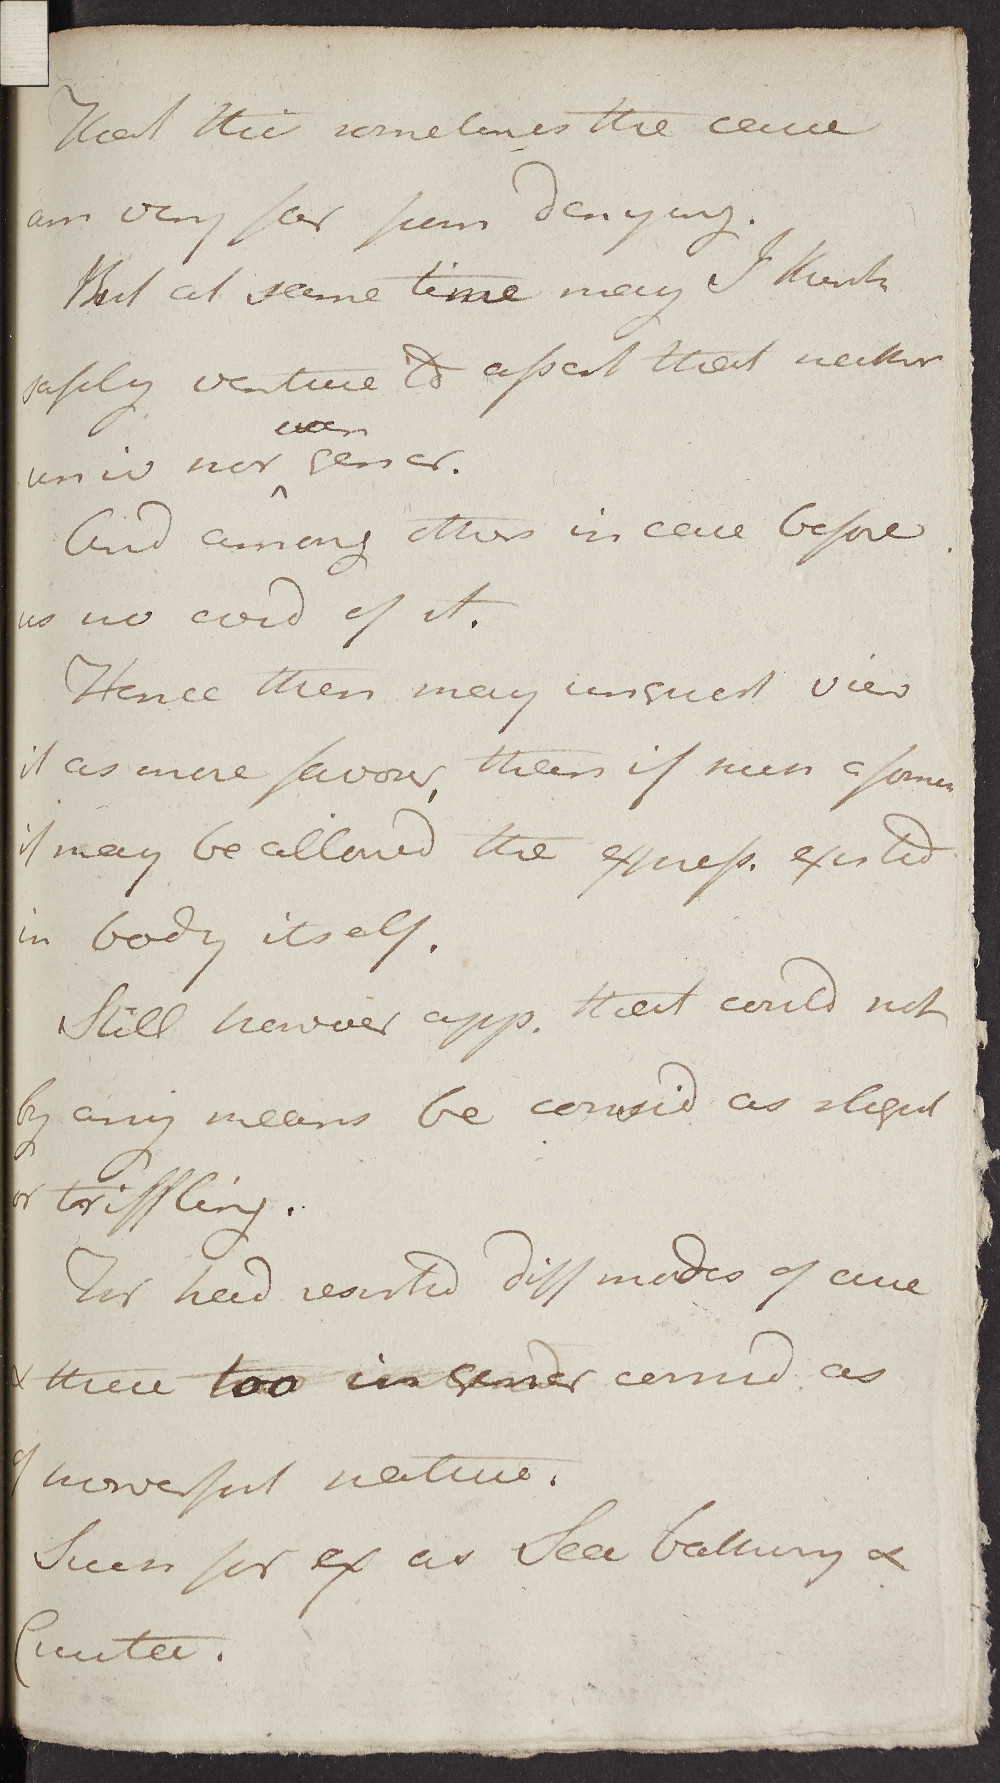 That this sometimes the case
am very far from denying.
But at same time may I think
safely venture to assert that neither
univ nor even gener.
And among others in case before
us no evid of it.
Hence then may in gual view
it as more favour, than if such a fomes
if may be allowed the express. existed
in body itself.
Still however app. that could not
by any means be consid as slight
or triffling.
For had resorted diff modes of cure
& these too in gener consid as
of powerful nature.
Such for ex as Sea bathing &
Cicuta.